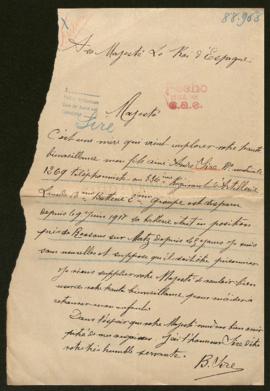 88.968
A Sa Majesté Le Roi d'Espagne
Majesté
Siré
C'est une mère qui vient implorer votre haute
bienveillance mon fils aîné André Siré Nº matricule
1269 téléphoniste au Régiment d'Artillerie
Lourde Batterie Groupe est disparu
depuis le 9 Juin 1918 sa batterie était en position
près de Ressons sur Matz depuis ce jour je suis
sans nouvelles et suppose qu'il doit être prisonnier
Je viens supplier votre Majesté de vouloir bien
votre haute bienveillance pour m'aider à
retrouver mon enfant
Dans l'espoir que votre Majesté
pitié de mes angoisses j'ai l'honneur Sire d'être
votre très humble servante.
B. Siré